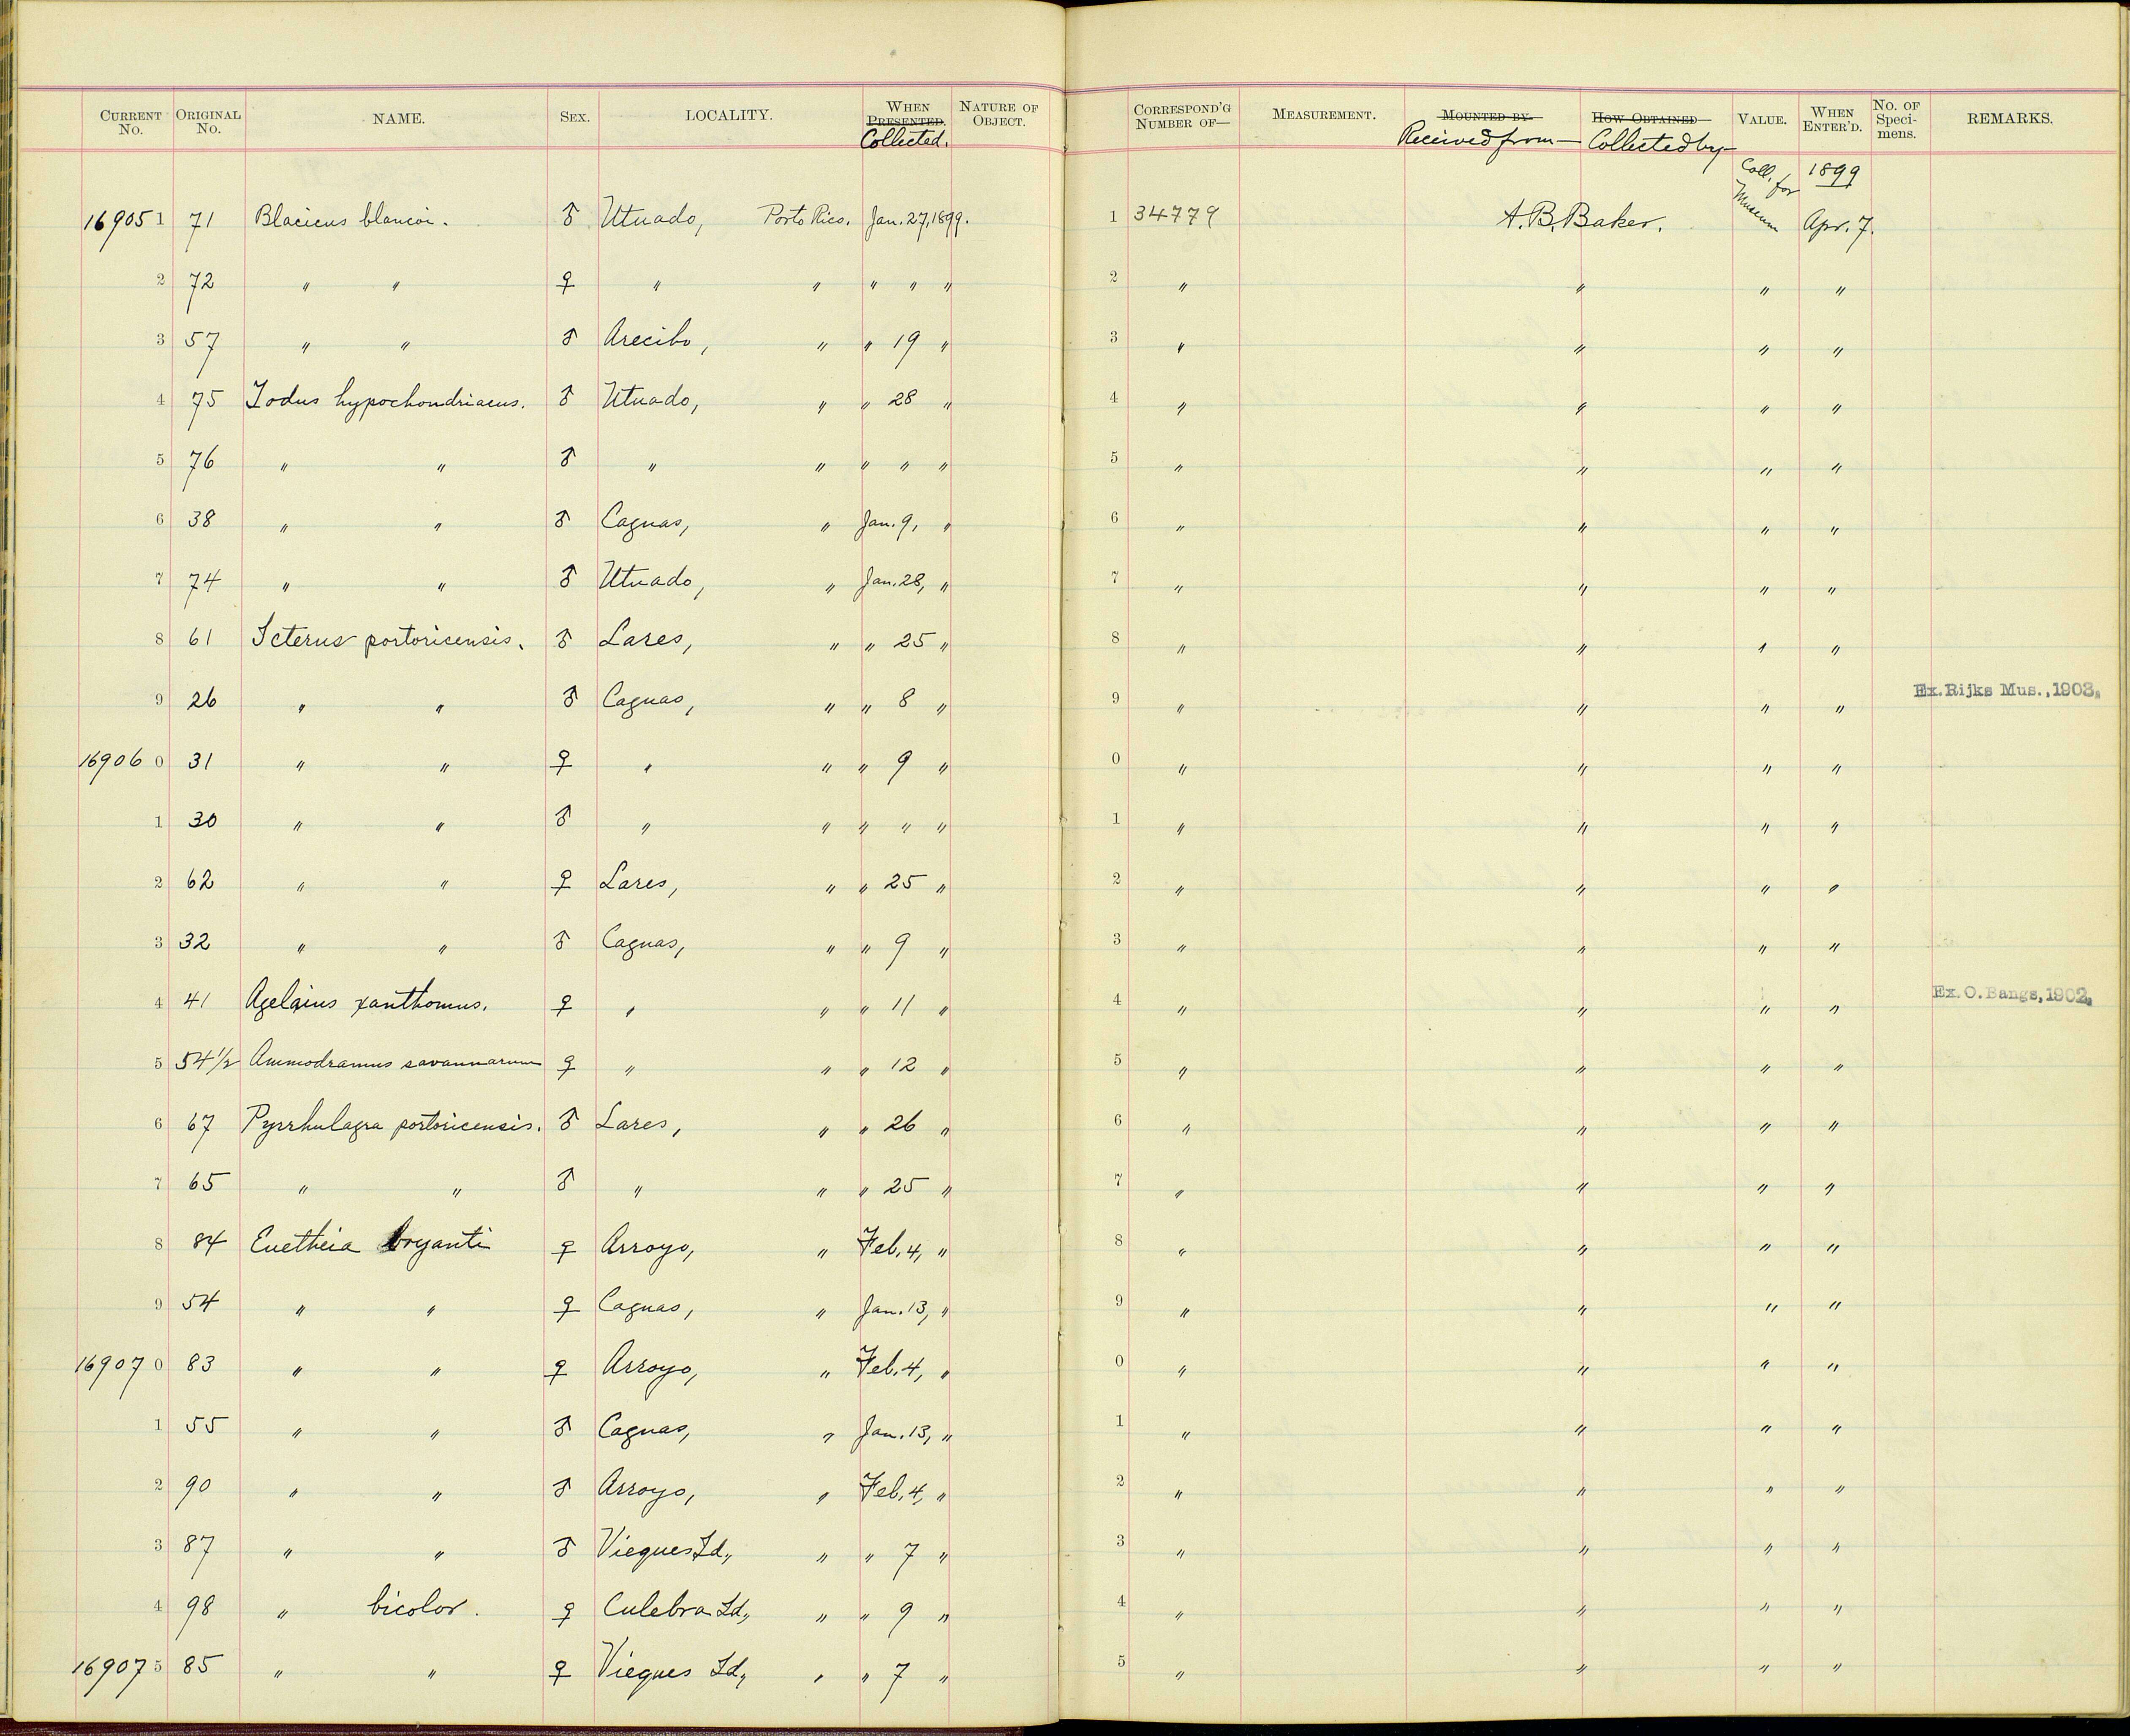 CURRENT No. ORIGINAL No. NAME. SEX. LOCALITY. WHEN PRESENTED. Collected. NATURE OF OBJECT. CORRESPOND'G NUMBER OF— MEASUREMENT. MOUNTED BY Received from— HOW OBTAINED Collected by— VALUE. WHEN ENTER'D. No. OF Speci-mens. REMARKS.
Coll. for Museum 1899
16905 1 71 Blacicus blancoi. ♂ Utuado, Porto Rico. Jan. 27, 1899. 1 34779 A. B. Baker. Apr. 7.
2 72 " " ♀ " " " " " 2 " " " "
3 57 " " ♂ Arecibo, " " 19 " 3 " " " "
4 75 Todus hypochondriacus. ♂ Utuado, " " 28 " 4 " " " "
5 76 " " ♂ " " " " " 5 " " " "
6 38 " " ♂ Caguas, " Jan. 9, " 6 " " " "
7 74 " " ♂ Utuado, " Jan. 28, " 7 " " " "
8 61 Icterus portoricensis. ♂ Lares, " " 25 " 8 " " " "
9 26 " " ♂ Caguas, " " 8 " 9 " " " " Ex. Rijks Mus., 1903.
16906 0 31 " " ♀ " " " 9 " 0 " " " "
1 30 " " ♂ " " " " " 1 " " " "
2 62 " " ♀ Lares, " " 25 " 2 " " " "
3 32 " " ♂ Caguas, " " 9 " 3 " " " "
4 41 Agelaius xanthomus. ♀ " " " 11 " 4 " " " " Ex. O. Bangs, 1902.
5 54 1/2 Ammodramus savannarum ♀ " " " 12 " 5 " " " "
6 67 Pyrrhulagra portoricensis. ♂ Lares, " " 26 " 6 " " " "
7 65 " " ♂ " " " 25 " 7 " " " "
8 84 Euetheia bryanti ♀ Arroyo, " Feb. 4, " 8 " " " "
9 54 " " ♀ Caguas, " Jan. 13, " 9 " " " "
16907 0 83 " " ♀ Arroyo, " Feb. 4, " 0 " " " "
1 55 " " ♂ Caguas, " Jan. 13, " 1 " " " "
2 90 " " ♂ Arroyo, " Feb. 4, " 2 " " " "
3 87 " " ♂ Vieques Id., " " 7 " 3 " " " "
4 98 " bicolor. ♀ Culebra Id., " " 9 " 4 " " " "
16907 5 85 " " ♀ Vieques Id., " " 7 " 5 " " " "